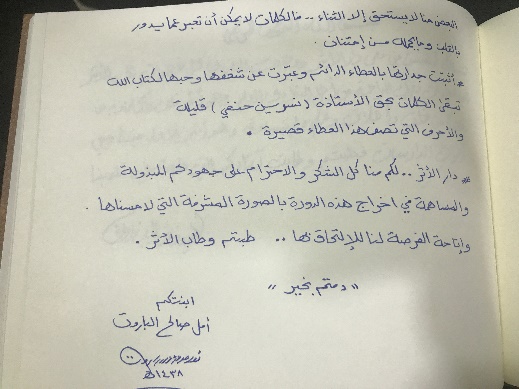 البعض منا لا يستحق إلا الثناء .. مالكلمات لا يمكن أن تعبر عما يدور
بالقلب وما يحمله من إمتنان .
* أثبتت جدارتها بالعطاء الدائم وعبّرت عن شغفها وحبها لكتاب الله
تبقى الكلمات بحق الأستاذة ( نسرين حنفي ) قليلة
والأحرف التي تصف هذا العطاء قصيرة .
* دار الأثر .. لكم منا كل الشكر والاحترام على جهودكم المبذولة
والمساهمة في اخراج هذه الدورة بالصورة المشرفة التي لامسناها .
وإتاحة الفرصة لنا للإلتحاق بها .. طبتم وطاب الأثر .
" دمتم بخير "
ابنتكم
أمل صالح الباروت
١٤٣٨هـ